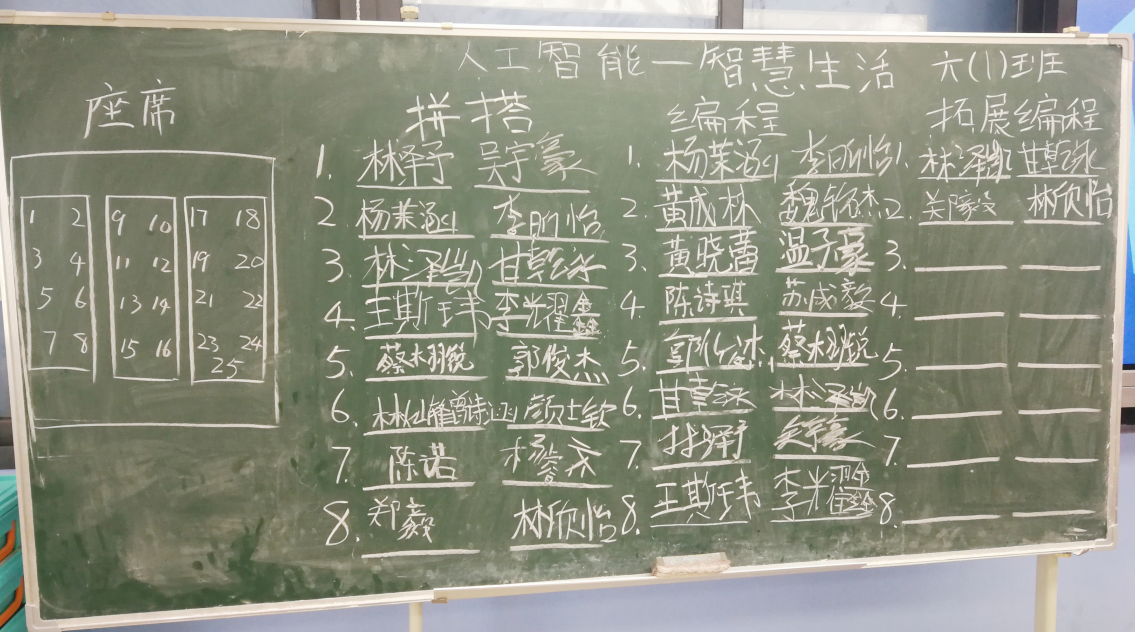 人工智能—智慧生活 六(1)班
座席 拼搭 编程 拓展编程
1 2 9 10 17 18
3 4 11 12 19 20
5 6 13 14 21 22
7 8 15 16 23 24
25
1. 林泽予 吴宇豪 1. 杨茉涵 李昕怡 1. 林泽凯 甘乾泳
2. 杨茉涵 李昕怡 2. 黄成林 魏铭杰 2. 郑毅 林欣怡
3. 林泽凯 甘乾泳 3. 黄晓蕾 温子豪 3.
4. 王斯玮 李光耀鑫 4. 陈诗琪 苏成毅 4.
5. 蔡木羽锐 郭俊杰 5. 蔡木羽锐 5.
6. 颜士钦 6. 甘乾泳 林泽凯 6.
7. 陈诺 杨 7. 林泽予 吴宇豪 7.
8. 郑毅 林欣怡 8. 王斯玮 李光耀鑫 8.